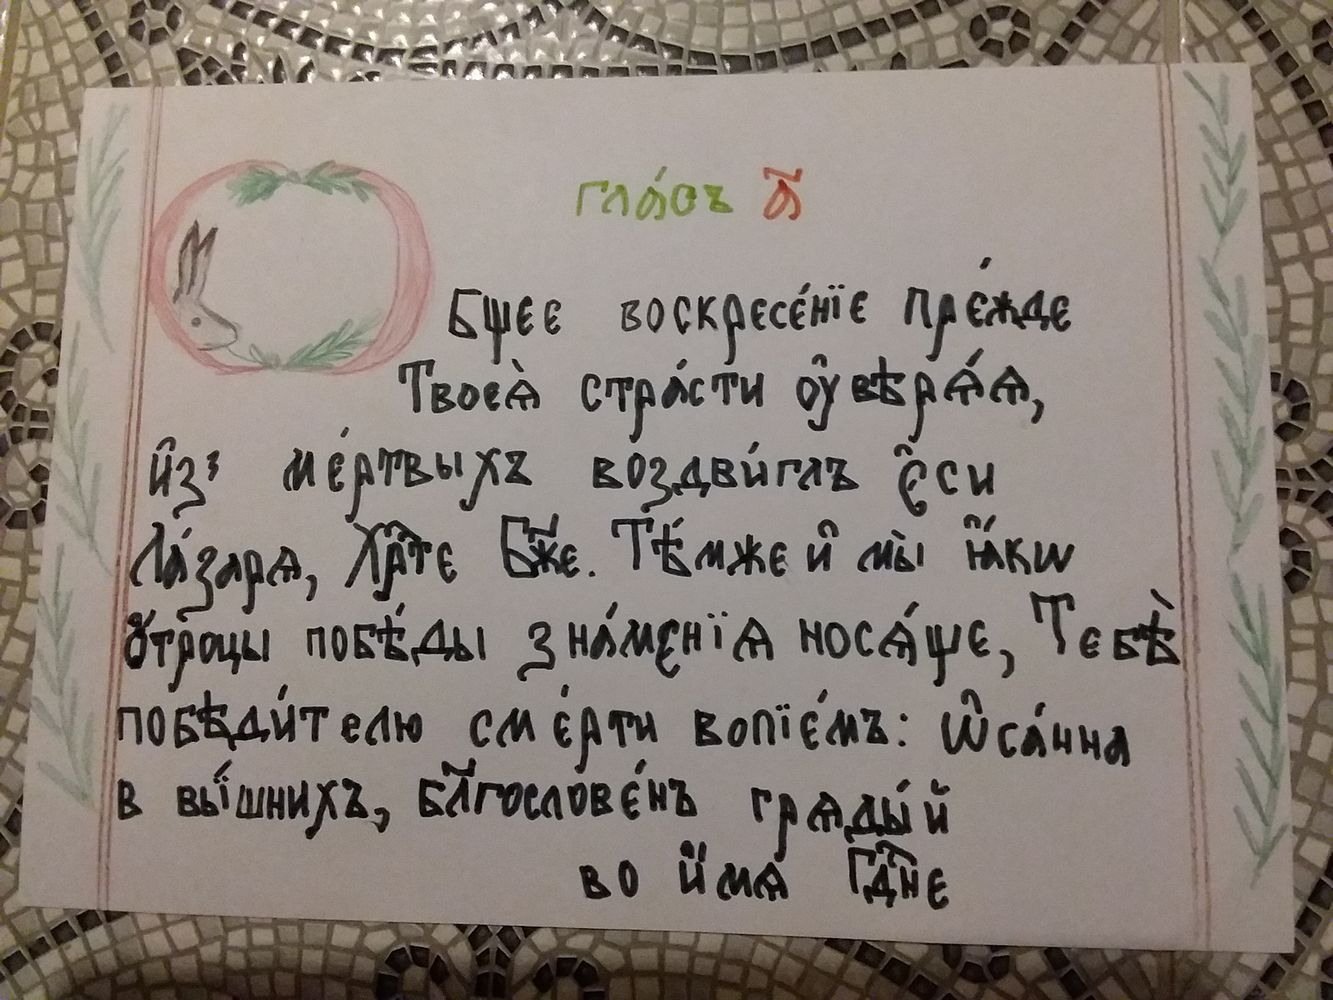 гла́съ а҃
Бщее воскресе́нїе пре́жде
Твоеѧ̀ стра́сти оу҆вѣрѧ́ѧ,
и҆з̾ ме́ртвыхъ воздви́глъ є҆си
Ла́зарѧ, Хрⷭ҇те Бж҃е. Тѣ́мже и҆ мы̀ ꙗ҆́кѡ
ѻ҆́троцы побѣ́ды зна́менїѧ носѧ́ще, Тебѣ̀
побѣди́телю сме́рти вопїе́мъ: ѡ҆са́нна
в вы́шнихъ, бл҃гослове́нъ грѧды́й
во и҆́мѧ Гдⷭ҇не